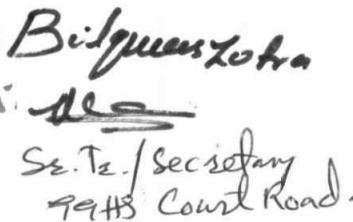 Bilquees Zohra
Sr. Tr. / Secretary
99HB Court Road.